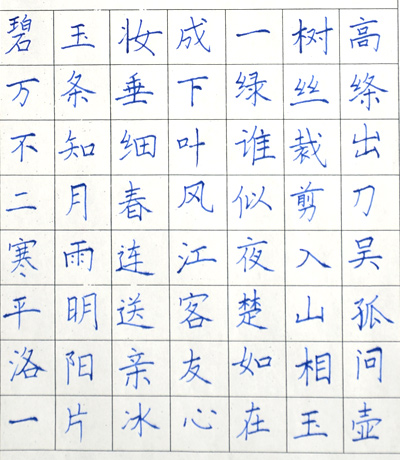 碧玉妆成一树高
万条垂下绿丝绦
不知细叶谁裁出
二月春风似剪刀
寒雨连江夜入吴
平明送客楚山孤
洛阳亲友如相问
一片冰心在玉壶